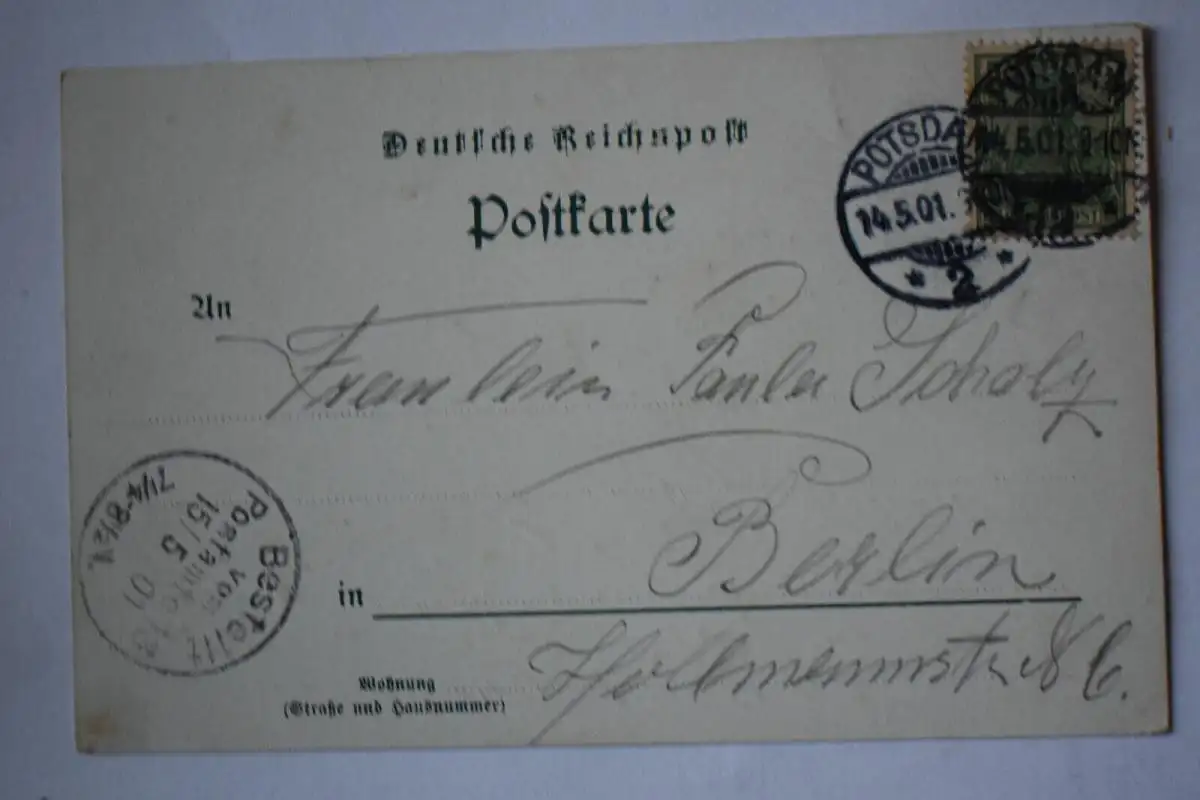 Deutsche Reichspost
Postkarte
An
Fräulein Paula
in Berlin
Wohnung
(Straße und Hausnummer)
POTSDAM
14.5.01.
2
POTSDAM
14.5.01. 9-10
POST
Bestellt
vom
Postamte
15/5 01
7¼-8½V.